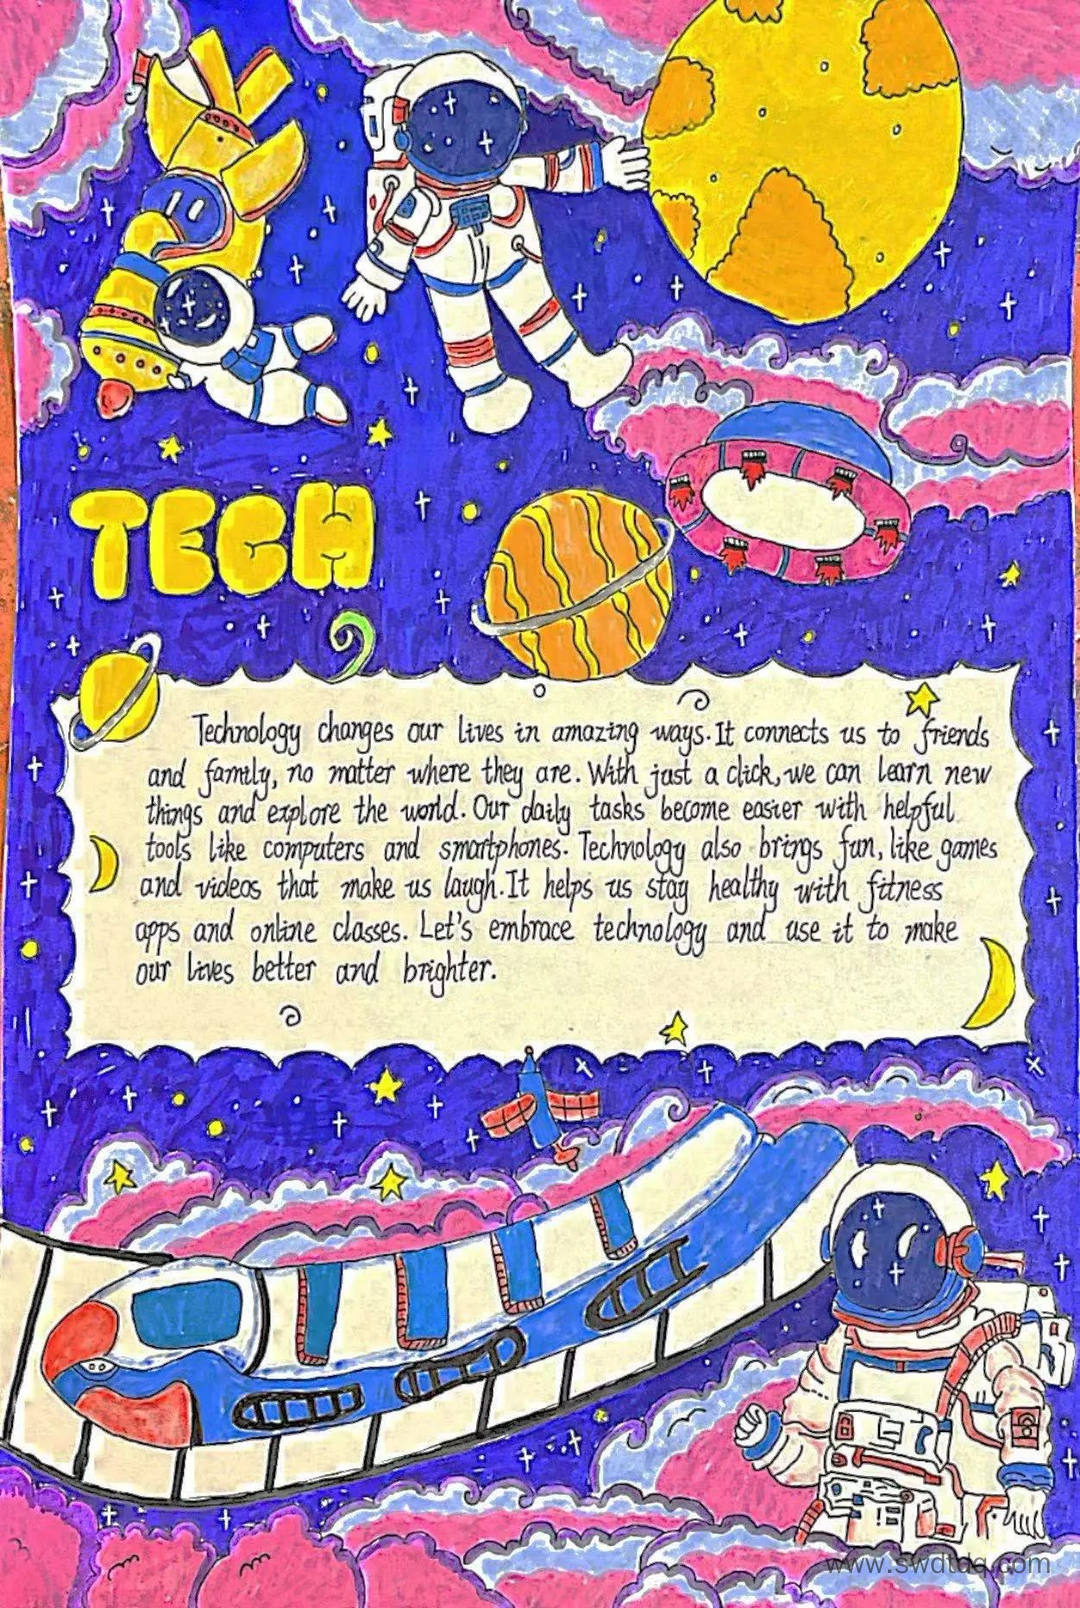 TECH
Technology changes our lives in amazing ways. It connects us to friends
and family, no matter where they are. With just a click, we can learn new
things and explore the world. Our daily tasks become easier with helpful
tools like computers and smartphones. Technology also brings fun, like games
and videos that make us laugh. It helps us stay healthy with fitness
apps and online classes. Let's embrace technology and use it to make
our lives better and brighter.
www.swdtdq.com